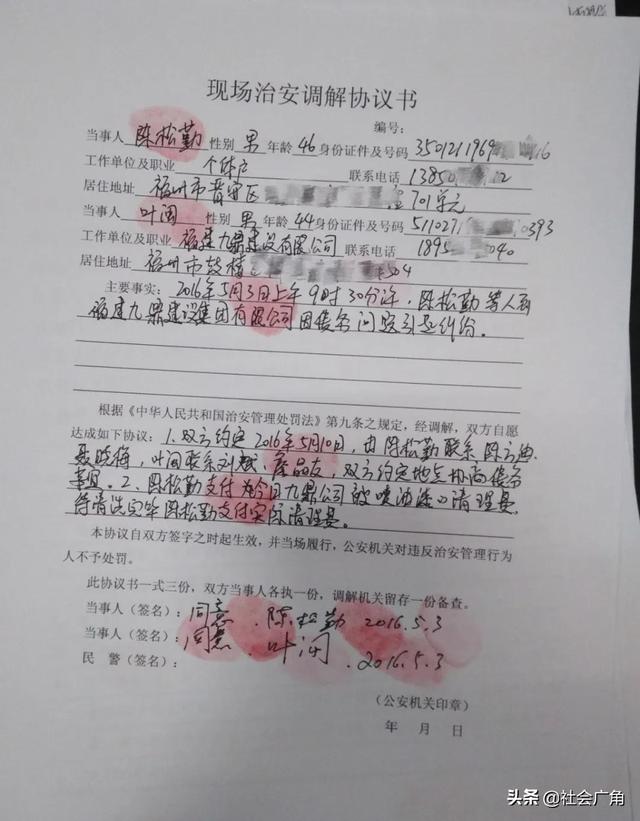 现场治安调解协议书
编号：
当事人 陈松勤 性别 男 年龄 46 身份证件及号码 3501211969 16
工作单位及职业 个体户 联系电话 13850 12
居住地址 福州市晋安区 701单元
当事人 叶闽 性别 男 年龄 44 身份证件及号码 511027 0393
工作单位及职业 福建九鼎建设有限公司 联系电话 1895 040
居住地址 福州市鼓楼 504
主要事实：2016年5月3日上午9时30分许，陈松勤等人到
福建九鼎建设集团有限公司因债务问题引起纠纷。
根据《中华人民共和国治安管理处罚法》第九条之规定，经调解，双方自愿
达成如下协议：1.双方约定2016年5月10日，由陈松勤联系陈
聂晓梅，叶闽联系刘斌、 品友，双方约定地点协商债务
事宜。2、陈松勤支付为今日九鼎公司被喷油漆 清理费，
待清洗完毕陈松勤支付实际清理费。
本协议自双方签字之时起生效，并当场履行，公安机关对违反治安管理行为
人不予处罚。
此协议书一式三份，双方当事人各执一份，调解机关留存一份备查。
当事人（签名）：同意．陈松勤 2016.5.3
当事人（签名）：同意．叶闽．2016.5.3
民 警（签名）：
（公安机关印章）
年 月 日
头条 @社会广角